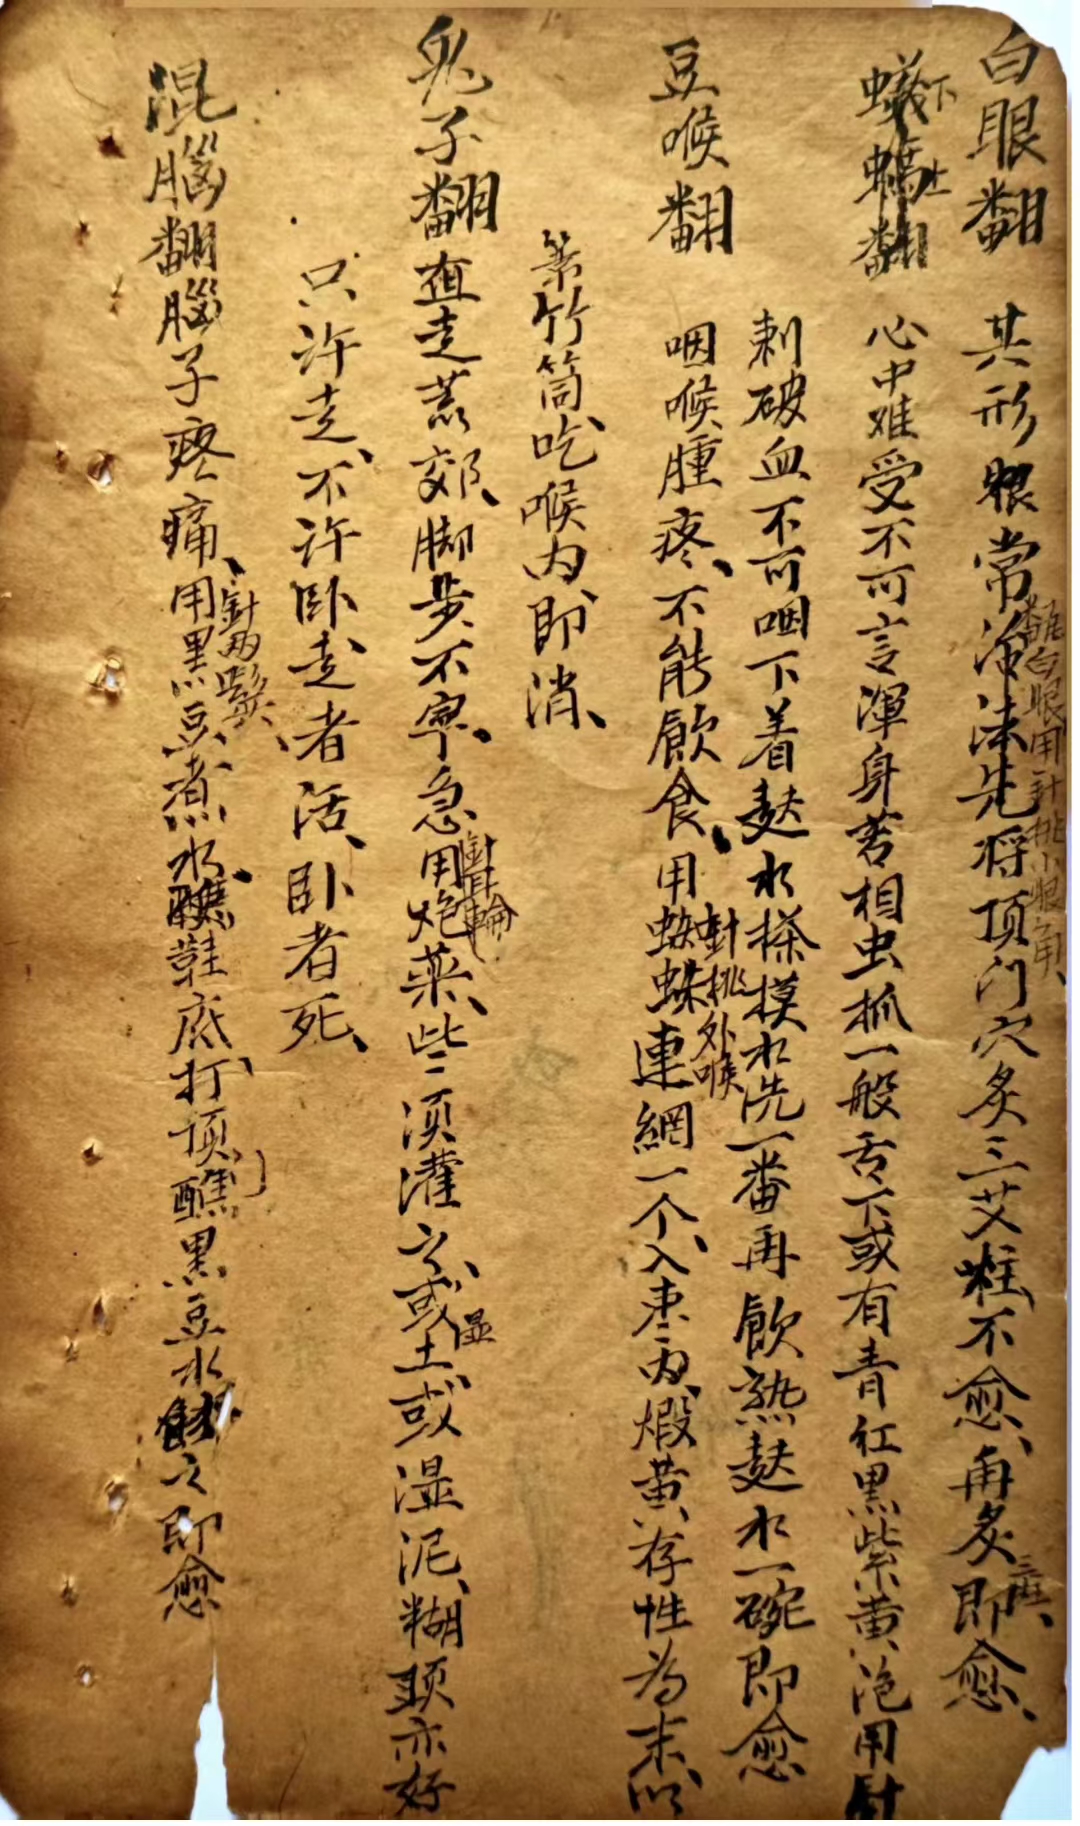 白眼翻 其形眼常治法先将顶门穴炙三艾炷、不愈、再炙三炷、即愈、
翻白眼用針挑小眼角、
蟻螨翻 心中难受不可言渾身若相虫抓一般舌下或有青红黑紫黄泡用針
刺破血不可咽下着麩水搽摸水洗一番再飲热麩水一碗即愈
豆喉翻 咽喉腫疼、不能飲食、用蜘蛛連網一个、入枣内、煅黄存性為末、以
針挑外喉
第竹筒吃喉内、即消、
兎子翻 直走荒郊、脚步不寧、急用炮藥、些二须灌之、或土或湿泥、糊頭亦好
湿
只许走、不许卧走者活、卧者死、
混腦翻 腦子疼痛、用黑豆煮水、醮鞋底打顶、醮黑豆水之即愈
針两鬓、